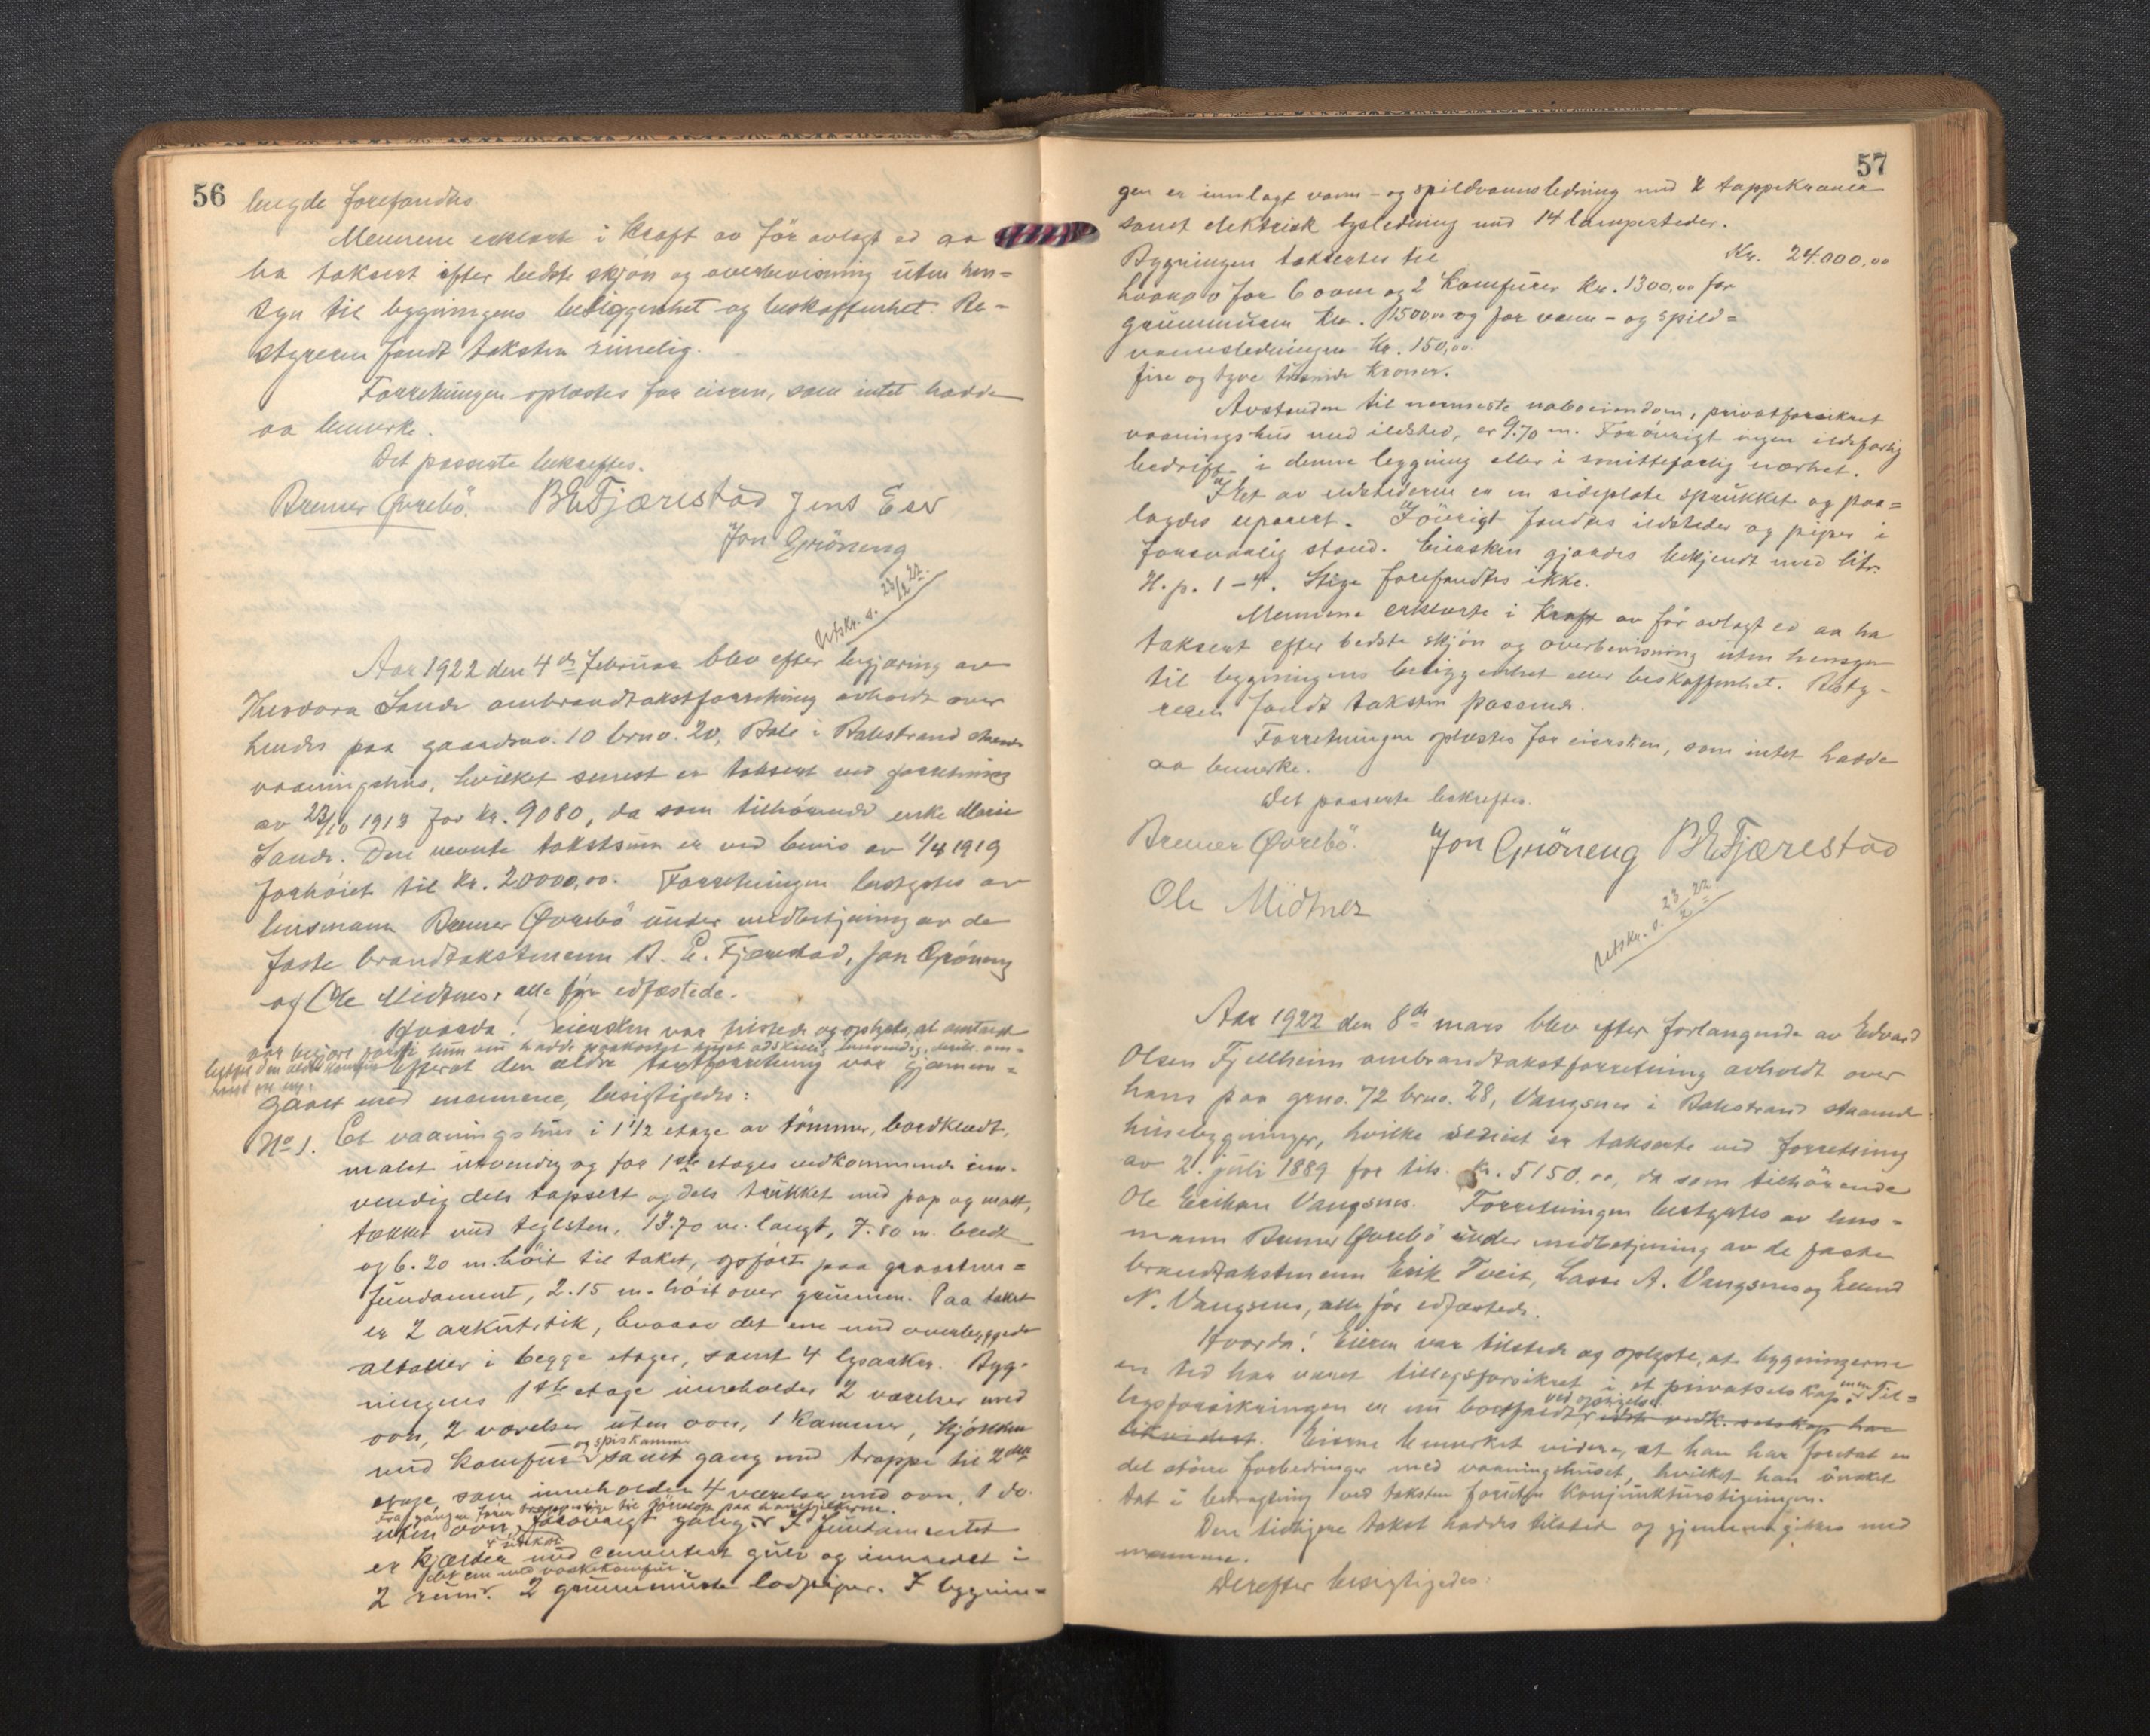 56
lengde forefandtes.
Mennene erklærte i kraft av før avlagt ed aa
ha taksert efter bedste skjøn og overbevisning uten hen=
syn til bygningens beliggenhet og beskaffenhet. Be-
styreren fandt taksten rimelig.
Forretningen oplæstes for eieren, som intet hadde
aa bemerke.
Det passerte bekræftes.
Bremer Øvrebö. B E Fjærestad Jens Ese
Jon Gröneng
Utskr. s. 23/2 22.
Aar 1922 den 4de februar blev efter begjæring av
Theodora Sande ombrandtakstforretning avholdt over
hendes paa gaardsno. 10 brno. 20, Bale i Balestrand staaende
vaaningshus, hvilket senest er taksert ved forretning
av 23/10 1913 for kr. 9080, da som tilhørende enke Marie
Sande. Den nevnte takstsum er ved bevis av 1/4 1919
forhøiet til Kr. 20000,00. Forretningen bestyrtes av
lensmann Bremer Øvrebö under medbetjening av de
faste brandtakstmenn B. E. Fjærestad, Jon Gröneng
og Ole Midtnes, alle før edfæstede.
Hvorda! Eiersken var tilstede og oplyste, at omtakst
var begjært fordi hun nu hadde paakostet huset adskillig innvendig,
efterat den ældre takstforretning var gjennem=
gaaet med mennene, besigtigedes:
No 1. Et vaaningshus i 1 1/2 etage av tömmer, bordklædt,
malet utvendig og for 1ste etages vedkommende inn-
vendig dels tapsert og dels trukket med pap og malt,
tækket med teglsten, 13.70 m. langt, 7.80 m. bredt
og 6.20 m. höit til taket, opfört paa graastens=
fundament, 2.15 m. höit over grunnen. Paa taket
er 2 arkutstik, hvorav det ene med overbyggede
altaner i begge etager, samt 4 lysarker. Byg-
ningens 1ste etage inneholder 2 værelser med
ovn, 2 værelser uten ovn, 1 kammer, kjökken
og spiskammer
med komfur samt gang med trappe til 2den
etage, som inneholder 4 værelser med ovn, 1 do.
Fra gangen förer trappestige til
uten ovn, forövrigt gang. I fundamentet
er kjælder med cementert gulv og innredet i
det ene med vaskekomfur.
2 rum. 2 grunnmurte lodpiper. I bygnin=
57
gen er innlagt vann- og spildvannsledning med 2 tappekraner
samt elektrisk lysledning med 14 lampesteder.
Bygningen taksertes til Kr. 24.000,00
hvorav for 6 ovne og 2 komfurer kr. 1300,00 for
grunnmuren Kr. 1500,00 og for vann- og spild=
vannsledningen Kr. 150,00.
fire og tyve tusinde kroner.
Avstanden til nærmeste naboeiendom, privatforsikret
vaaningshus med ildsted, er 9.70 m. Forövrigt ingen ildsfarlig
bedrift i denne bygning eller i smittefarlig nærhet.
I et av ildstederne er en sideplate sprukket og paa=
lagdes reparert. Iövrigt fandtes ildsteder og piper i
forsvarlig stand. Eiersken gjordes bekjendt med litr.
H. p. 1-4. Stige forefandtes ikke.
Mennene erklærte i kraft av før avlagt ed aa ha
taksert efter bedste skjön og overbevisning uten hensyn
til bygningens beliggenhet eller beskaffenhet. Besty-
reren fandt taksten passende.
Forretningen oplæstes for eiersken, som intet hadde
aa bemerke.
Det passerte bekræftes.
Bremer Øvrebö. Jon Gröneng B E Fjærestad
Ole Midtnes
Utskr. s. 23/2 22.
Aar 1922 den 8de mars blev efter forlangende av Edvard
Olsen Fjellheim ombrandtakstforretning avholdt over
hans paa grno. 72 brno. 28, Vangsnes i Balestrand staaende
husebygninger, hvilke senest er takserte ved forretning
av 2. juli 1889 for tils. kr. 5150,00, da som tilhörende
Ole Eriksen Vangsnes. Forretningen bestyrtes av lens=
mann Bremer Øvrebö under medbetjening av de faste
brandtakstmenn Erik Tveit, Lasse A. Vangsnes og Erlend
N. Vangsnes, alle før edfæstede.
Hvorda! Eieren var tilstede og oplyste, at bygningerne
en tid har været tillegsforsikret i et privatselskap, men Til=
ved opsigelse.
legsforsikringen er nu bortfaldt, idet vedk. selskap har
likvidert. Eieren bemerket videre, at han har foretat en
del större forbedringer med vaaningshuset, hvilket han önsket
tat i betragtning ved taksten foruten konjunkturstigningen.
Den tidligere takst hadde tilstede og gjennemgikkes med
mennene.
Derefter besigtigedes: